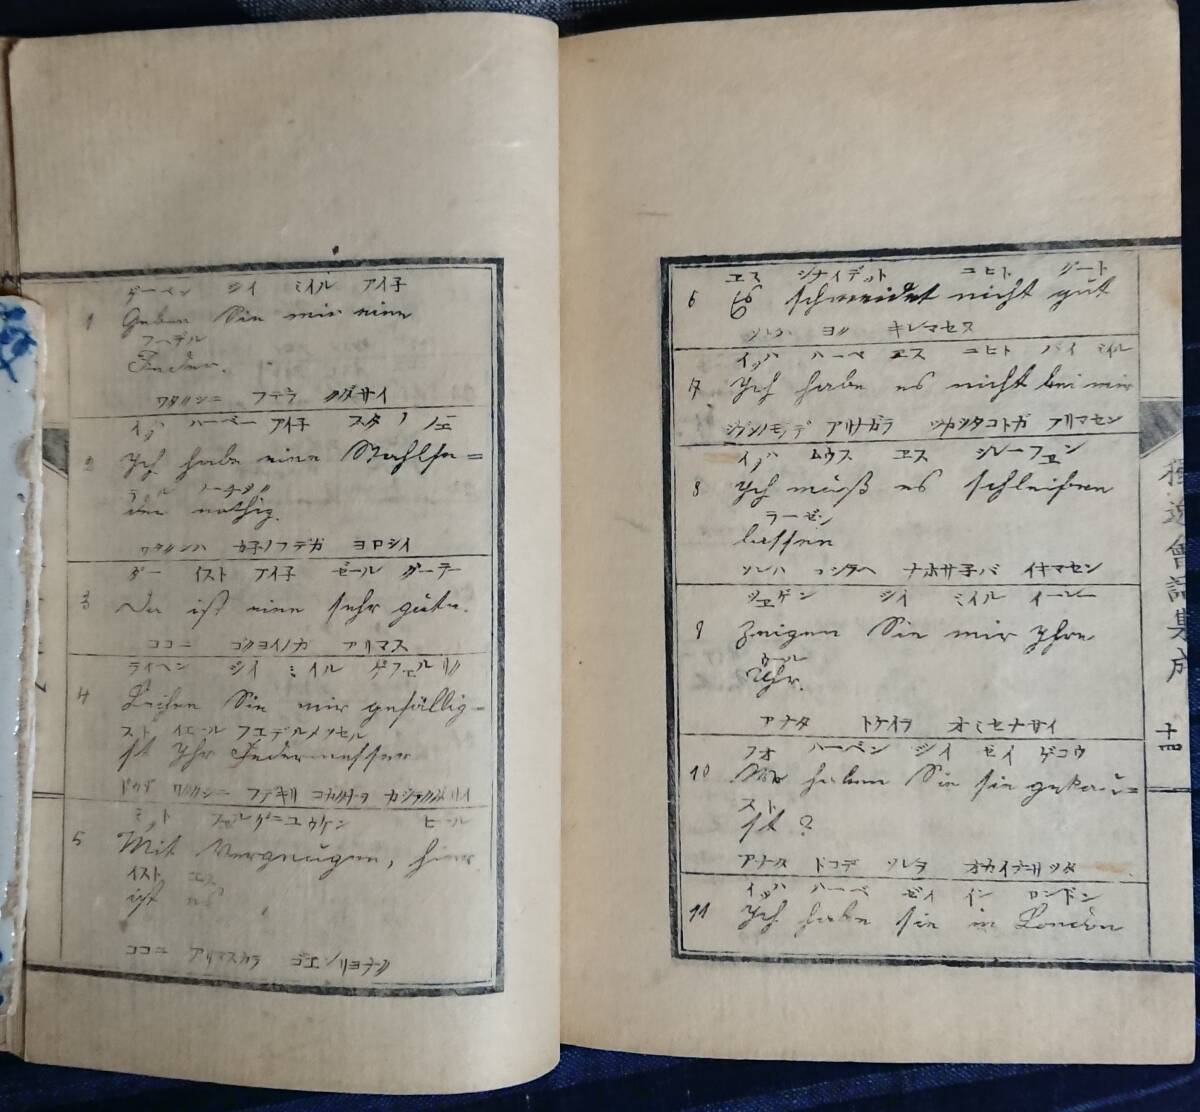 ゲーベン シイ ミイル アイ子
1 Geben Sie mir eine
フヘデル
Feder.
ワタクシニ フデヲ クダサイ
イッヒ ハーベー アイ子 スタ
2 Ich habe eine Stahlfe=
der nöthig.
ワタクシハ カ子ノフデガ ヨロシイ
ダー イスト アイ子 ゼール グーテー
3 Da ist eine sehr gute.
ココニ ゴクヨイノガ アリマス
ライヘン シイ ミイル ゲフェルリク
4 Leihen Sie mir gefällig=
スト イエール フエデルメッセル
st Ihr Federmesser
ワタクシニ コガタナヲ
ミット ヒール
5 Mit Vergnügen, hier
イスト エス
ist es
ココニ アリマスカラ
ヱス シナイデット ニヒト グート
6 Es schneidet nicht gut
ソレハ ヨク キレマセヌ
イッヒ ハーベ エス ニヒト バイ ミイル
7 Ich habe es nicht bei mir
アリナガラ アリマセン
イッヒ ムウス ヱス シレーフヱン
8 Ich muß es schleifen
ラーセン
lassen
ソレハ ナホサ子バ イキマセン
ツヱゲン シイ ミイル イーレー
9 Zeigen Sie mir Ihre
ウール
Uhr.
アナタ トケイヲ オミセナサイ
フオ ハーベン シイ ゼイ ゲコウ
10 Wo haben Sie sie gekau=
スト
ft ?
アナタ ドコデ ソレヲ オカイナサリツタ
イッヒ ハーベ ゼイ イン ロンドン
11 Ich habe sie in London
獨逸會話集成
十四